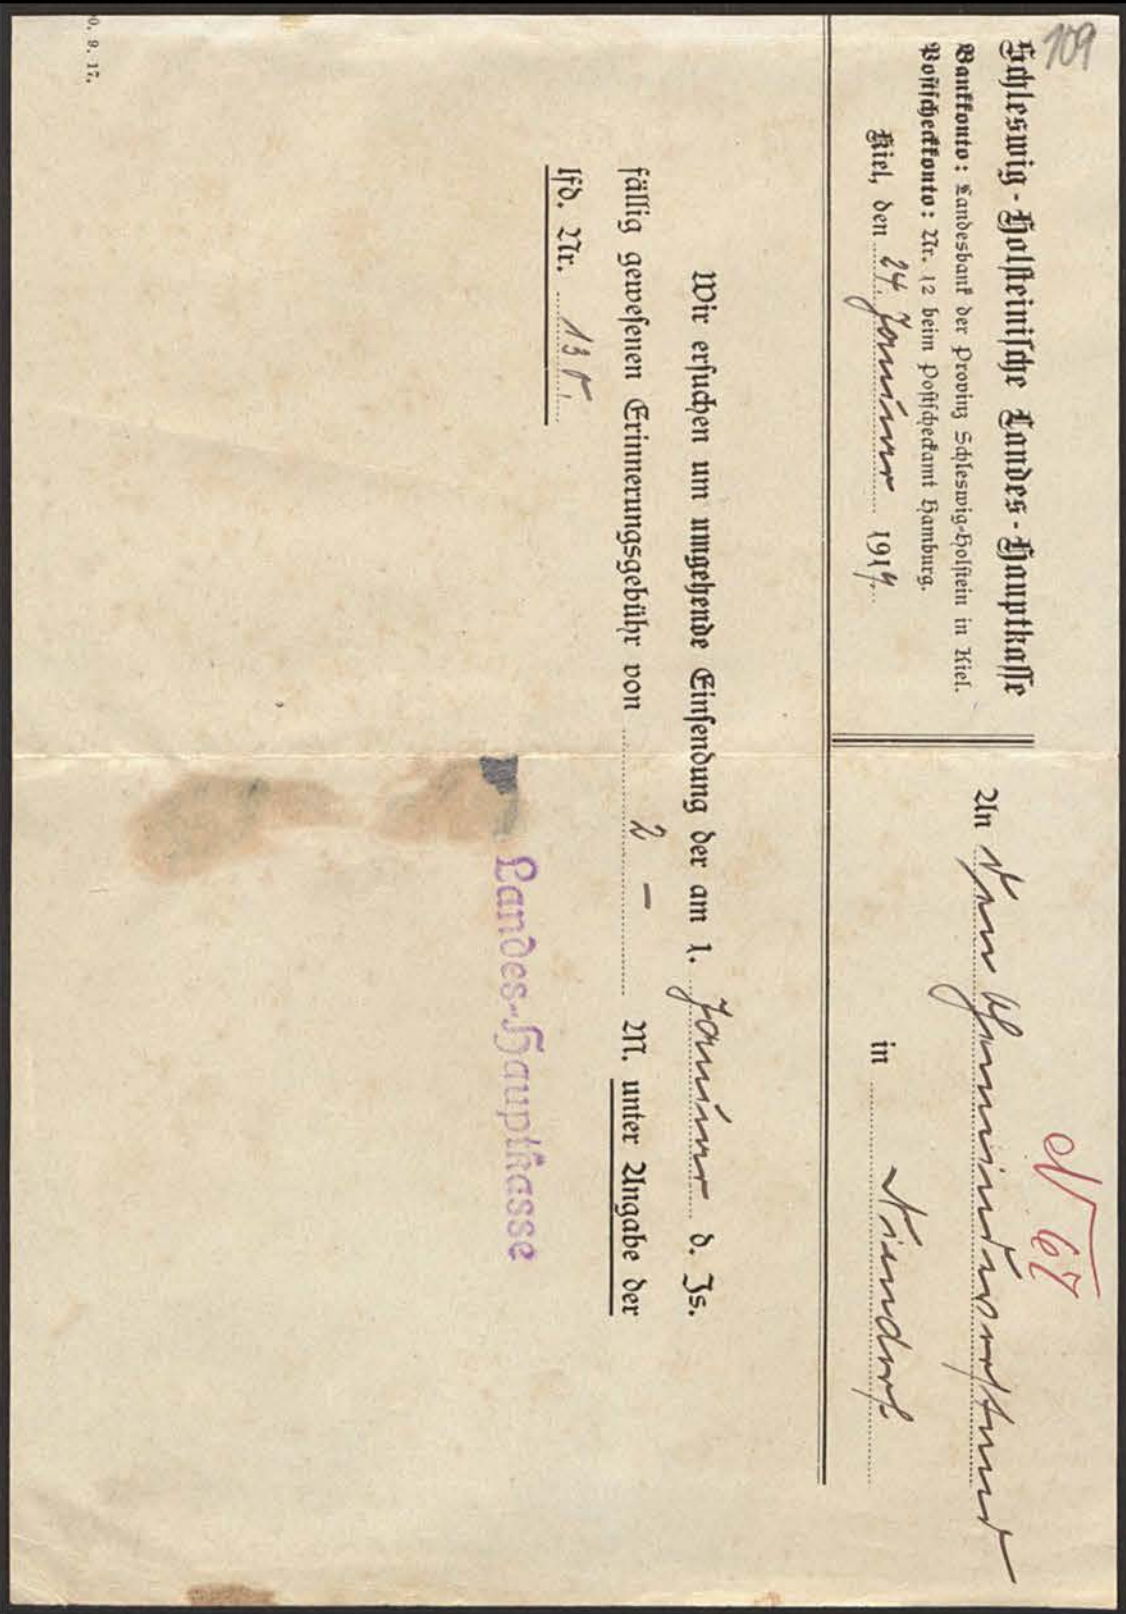 109
Schleswig-Holsteinische Landes-Hauptkasse
Bankkonto: Landesbank der Provinz Schleswig-Holstein in Kiel.
Postscheckkonto: Nr. 12 beim Postscheckamt Hamburg.
Kiel, den 24. Januar 1919.
N 67
An den Gemeindevorstand
in Niendorf
Wir ersuchen um umgehende Einsendung der am 1. Januar d. Js.
fällig gewesenen Erinnerungsgebühr von 2 – M. unter Angabe der
lfd. Nr.
Landes-Hauptkasse
0. 9. 17.